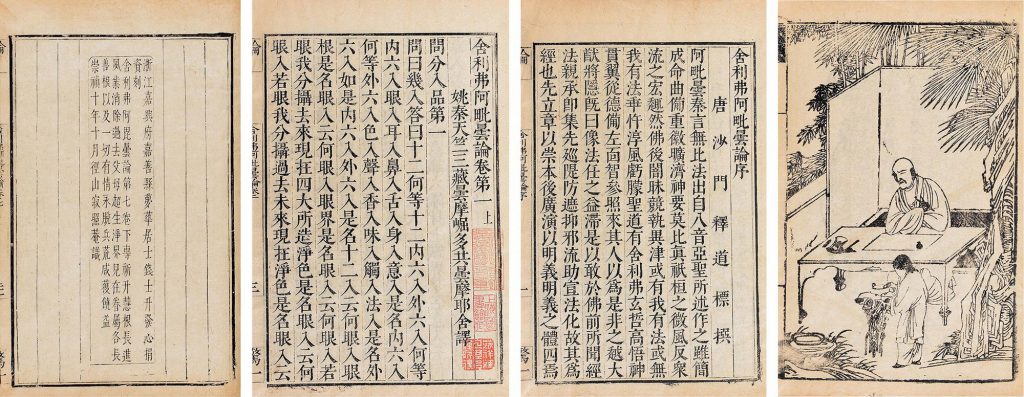 舍利弗阿毗曇論序
唐沙門釋道標撰
阿毗曇秦言無比法出自八音亞聖所述作之雖簡
成命曲備重徽曠濟神要莫比真祇桓之微風反衆
流之宏趣然佛後闇昧競執異津或有我有法或無
我有法乖忤淳風虧矇聖道有舍利弗玄哲高悟神
貫翼從德備左面智參照來其人以為是非之越大
猷將隱既曰像法任之益滯是以敢於佛前所聞經
法親承即集先巡隄防遮抑邪流助宣法化故其為
經也先立章以崇本後廣演以明義明義之體四焉
舍利弗阿毗曇論卷第一上
姚秦天竺三藏曇摩崛多共曇摩耶舍譯
問分入品第一
問曰幾入答曰十二何等十二內六入外六入何等
內六入眼入耳入鼻入舌入身入意入是名內六入
何等外六入色入聲入香入味入觸入法入是名外
六入如是內六入外六入是名十二入云何眼入眼
根是名眼入云何眼入眼界是名眼入云何眼入若
眼我分攝去來現在四大所造淨色是名眼入云何
眼入若眼我分攝過去未來現在淨色是名眼入云
浙江嘉興府嘉善縣夢華居士錢士升發心捐
資刻
舍利弗阿毘曇論第七卷下專祈升慧根長進
風業消除過去父母超生淨界見在眷屬各長
善根以及一切有情永脫兵荒咸獲饒益
崇禎十年十月徑山寂照菴識